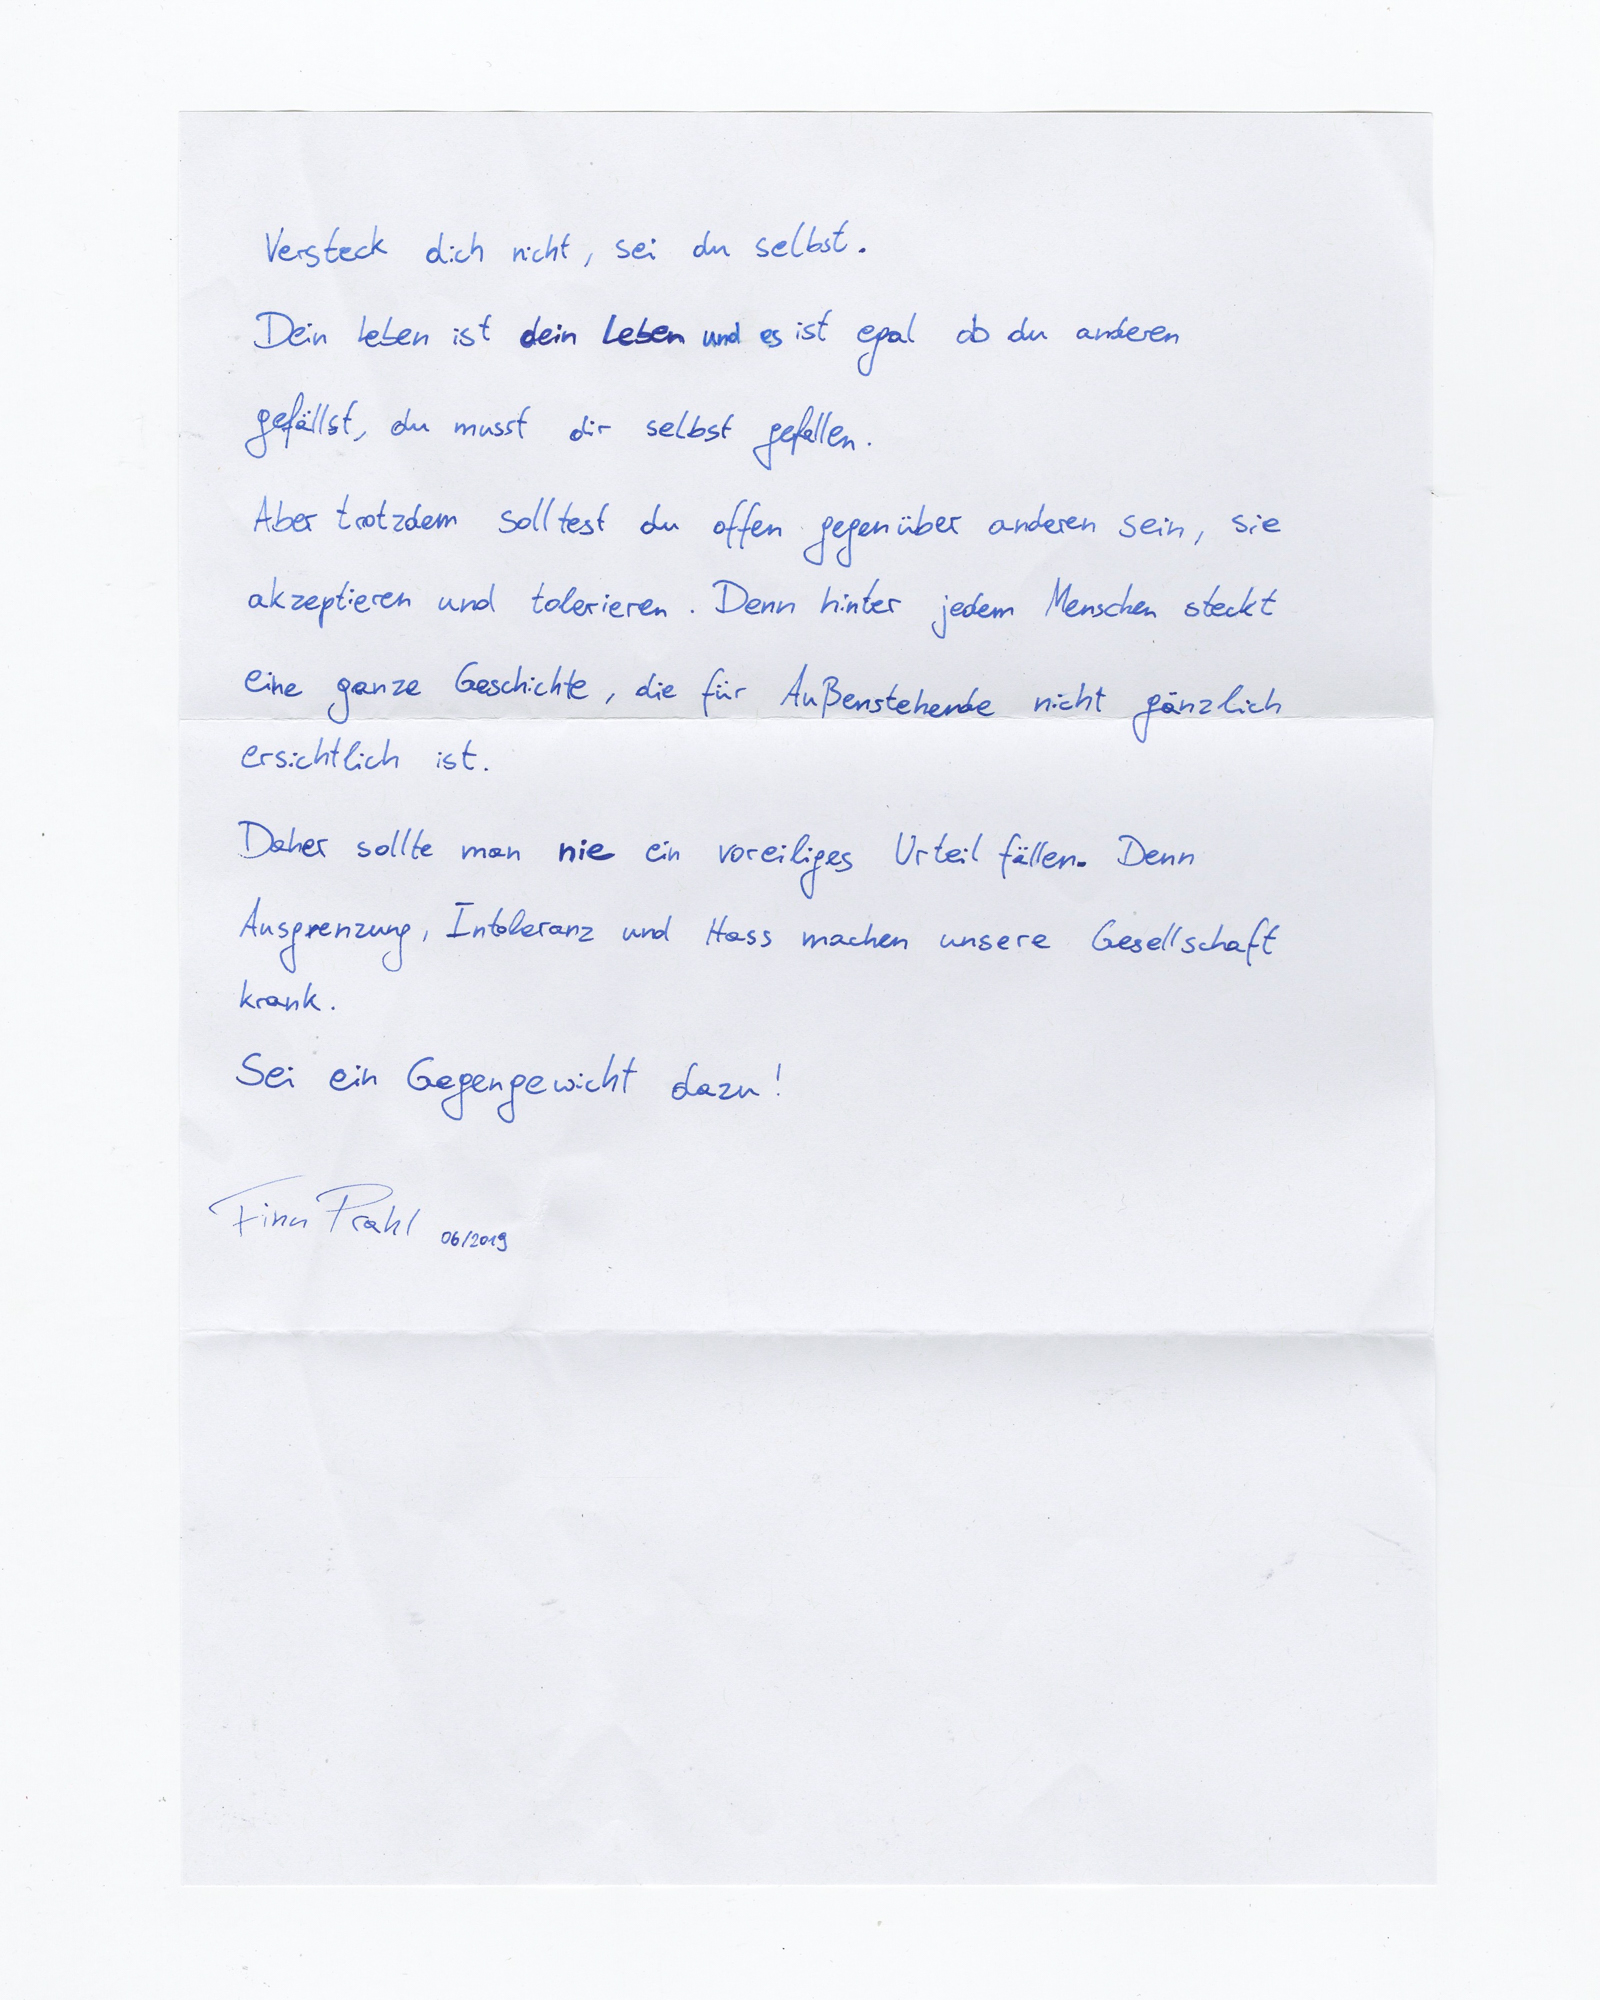 Versteck dich nicht, sei du selbst.
Dein Leben ist dein Leben und es ist egal ob du anderen
gefällst, du musst dir selbst gefallen.
Aber trotzdem solltest du offen gegenüber anderen sein, sie
akzeptieren und tolerieren. Denn hinter jedem Menschen steckt
eine ganze Geschichte, die für Außenstehende nicht gänzlich
ersichtlich ist.
Daher sollte man nie ein voreiliges Urteil fällen. Denn
Ausgrenzung, Intoleranz und Hass machen unsere Gesellschaft
krank.
Sei ein Gegengewicht dazu!
Finn Prahl 06/2019